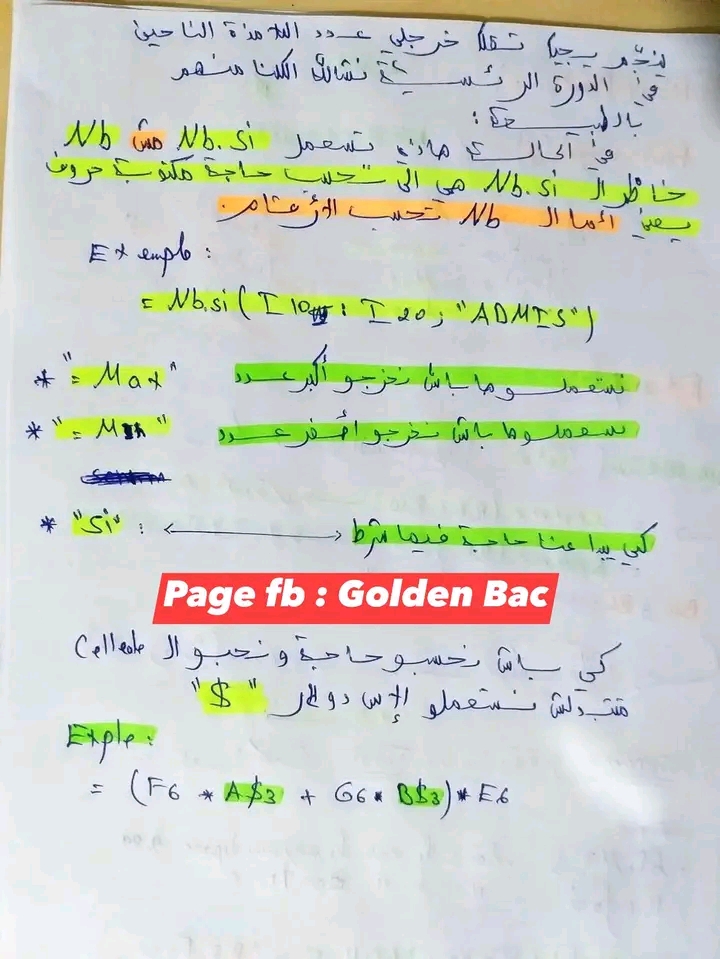 ينجّم يجيك تمّك خرجلي عدد التلامذة الناجحين
في الدورة الرئسيّة
بالطبيعة :
في الحالة هاذي نستعمل Nb.si مش Nb
خاطر الـ Nb.si هي الي تحسب حاجة مكتوبة حروف
يعني أما الـ Nb تحسب الأرقام.
Exemple :
= Nb.si ( I10 : I20; "ADMIS")
* "= Max" نستعملوها باش نخرجو أكبر عدد
* "= Min" نستعملوها باش نخرجو أصغر عدد
* "Si" : ↔ كي يبدا عنا حاجة فيها شرط
Page fb : Golden Bac
كي باش نحسبو حاجة و نحبو الـ Cellule
متتبدلش نستعملو الإس دولار "$"
Exple :
= (F6 * A$3 + G6 * B$3) * E6